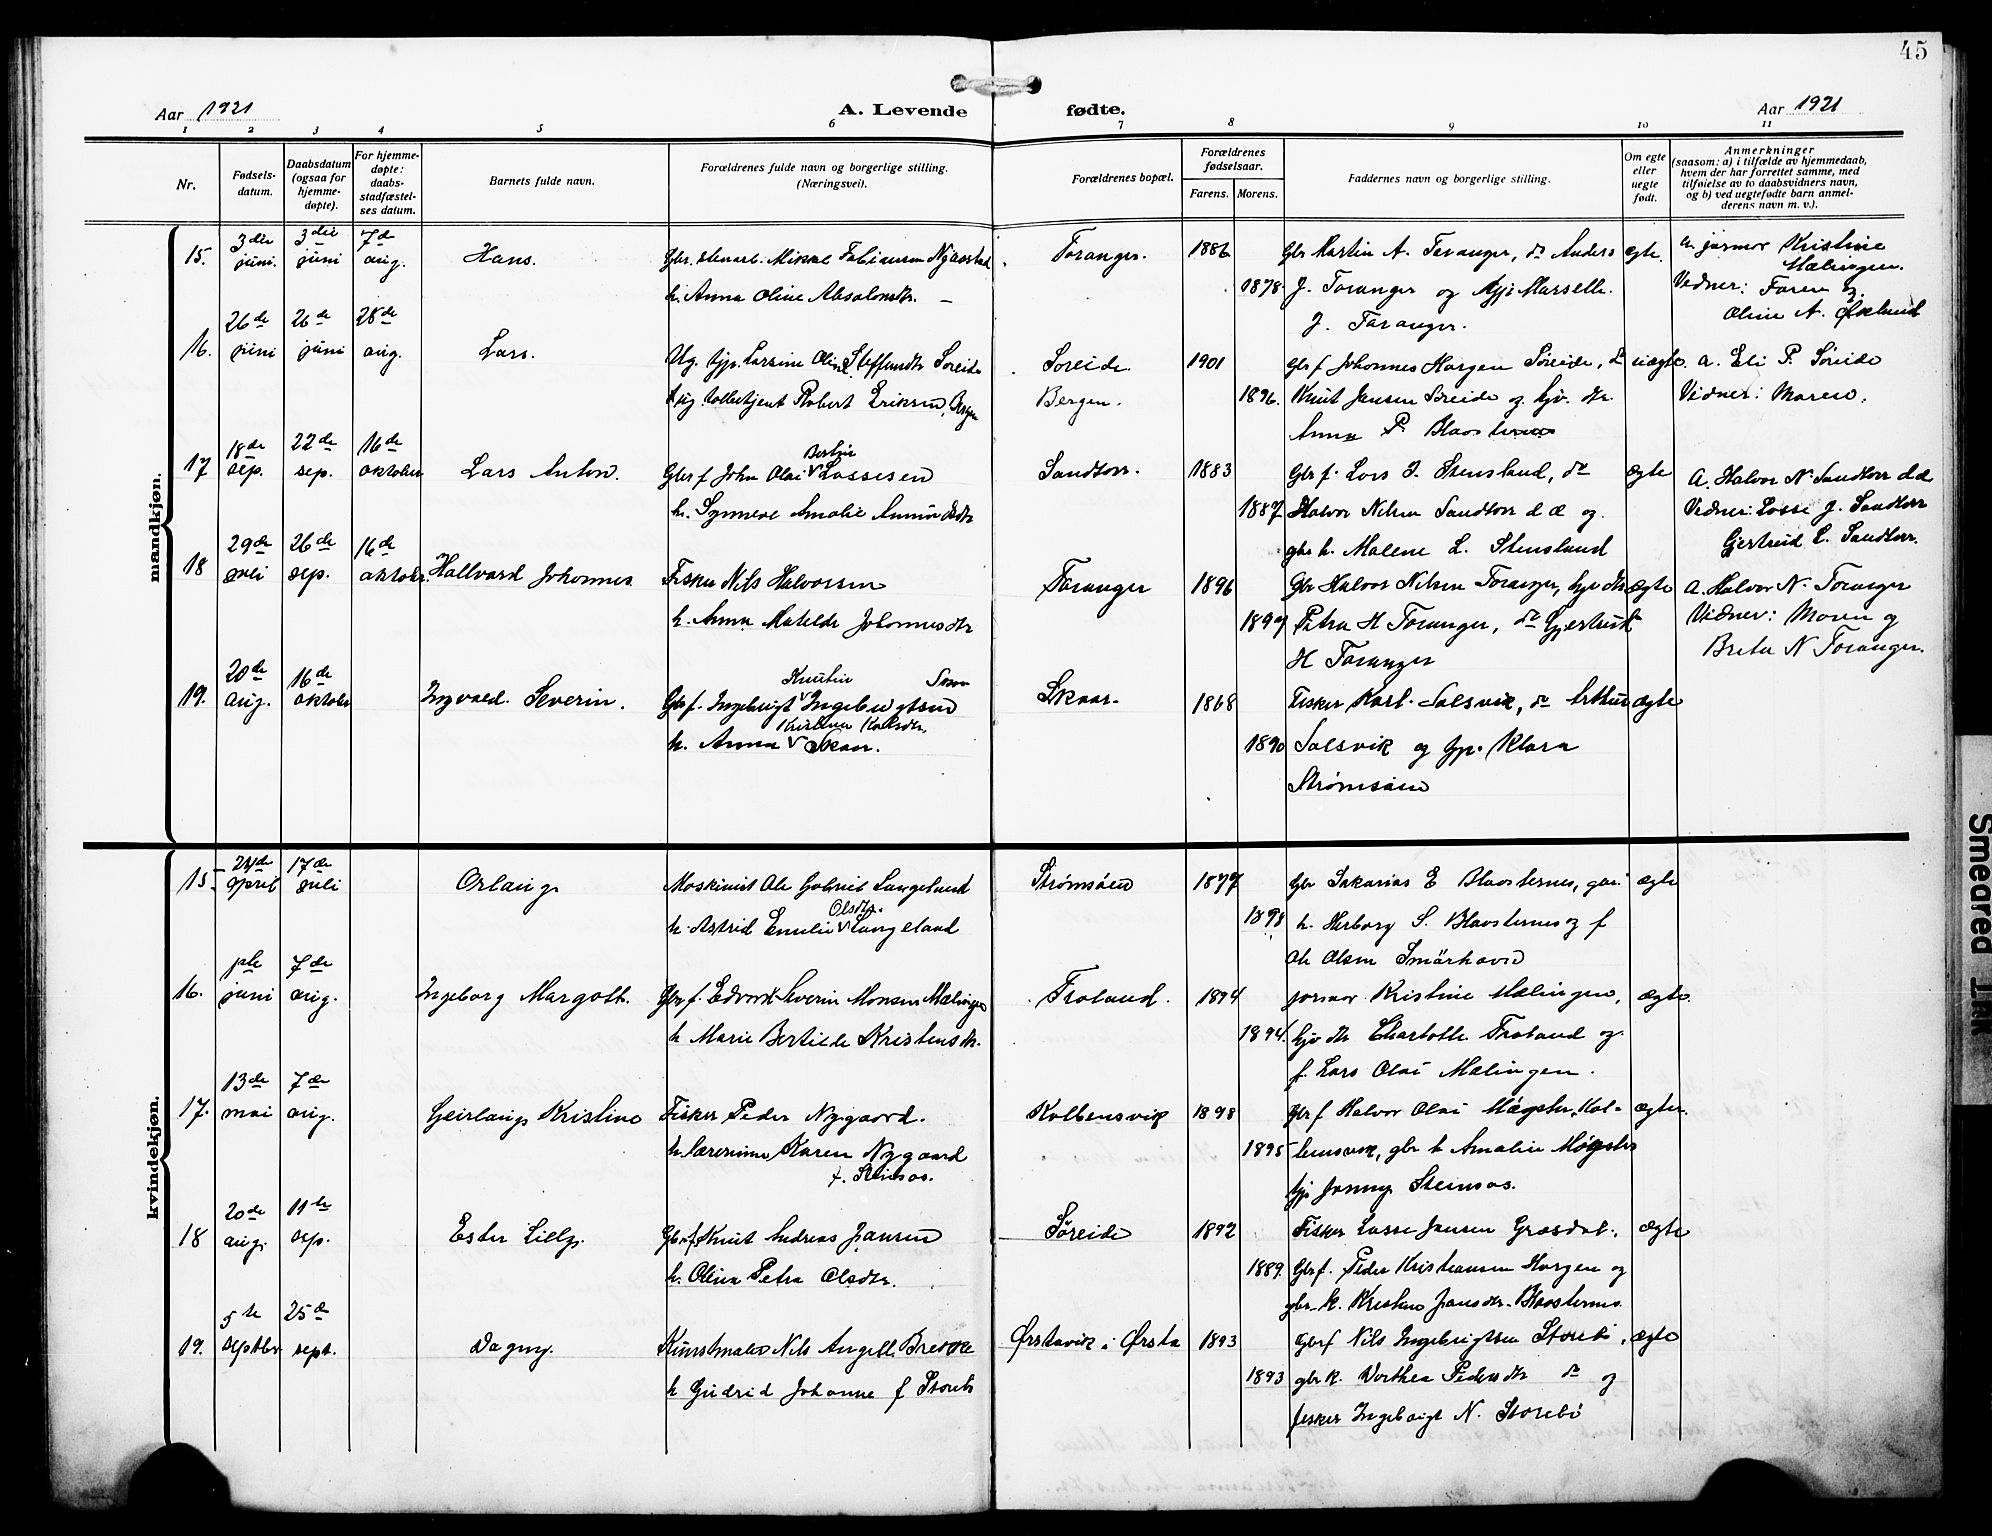 45
Aar 1921 A. Levende fødte. Aar 1921
1 2 3 4 5 6 7 8 9 10 11
Nr.
Fødsels-
datum.
Daabsdatum
(ogsaa for
hjemme-
døpte).
For hjemme-
døpte:
daabs-
stadfæstel-
ses datum.
Barnets fulde navn.
Forældrenes fulde navn og borgerlige stilling.
(Næringsvei).
Forældrenes bopæl.
Forældrenes
fødselsaar.
Farens. Morens.
Faddernes navn og borgerlige stilling.
Om egte
eller
uegte
født.
Anmerkninger
(saasom: a) i tilfælde av hjemmedaab,
hvem der har forrettet samme, med
tilføielse av to daabsvidners navn,
og b) ved uegtefødte barn anmel-
derens navn m. v.).
mandkjøn.
15. 3die juni. 3die juni 7de aug. Hans.
Gbr. stenarb. Mikal Fabiansen Nygaard
h. Anna Oline Absalonsdtr. —
Toranger. 1886
1878.
Gbr Martin A. Taranger, do Anders
J. Toranger og
J. Taranger.
egte.
a. jormor Kristine
Mælingen.
Vidner: Faren og
Oline A. Økland
16. 26de juni 26de juni 28de aug. Lars.
Ug. tjp. Larsine Oline Steffensdtr Søreide
Robert Eriksen, Bergen
Søreide.
Bergen.
1901
1896.
Gbr f Johannes Hargen Søreide,
Knut Jansen Søreide og gjv. dtr.
Anna P. Blaosternes
uægte.
a. Eli P. Søreide
Vidner: Moren.
17 18de sep. 22de sep. 16de oktober Lars Anton.
Bertin
Gbr f John Olai V Lassesen
h. Synneve Amalie
Sandtorr. 1883
1887
Gbr f. Lars J. Stensland, do
Halvor Nilsen Sandtorr d æ og
gbr h. Malene L. Stensland
ægte
A. Halvor N. Sandtorr d æ
Vidner: Lasse J. Sandtorr
Gjertrud L. Sandtorr.
18 29de juli 26de sep. 16de oktober. Hallvard Johannes
Fisker Nils Halvorsen
h. Anna Matilde Johannesdtr
Toranger 1896
1897
Gbr Halvor Nilsen Toranger, gjv dtr
Petra H Toranger, do Gjertrud
H Taranger
ægte
A. Halvor N. Toranger
Vidner: Moren og
Breta N Toranger.
19. 20de aug. 16de oktober Ingvald Severin.
Knutin Skaar
Gbr f. Ingebrigt V Ingebrigtsen
Kristine Karlsdtr.
h. Anna V Skaar.
Skaar. 1868
1890
Fisker Karl Solsvik, do Arthur
Solsvik og tjp. Klara
Strømsøen
ægte
kvindekjøn.
15. 24de april 17de juli Orlaug.
Maskinist Ole Gabriel Langeland
Olsdtr.
h. Astrid Emilie V Langeland
Strømsøen 1877
1898
Gbr Sakarias E Blaosternes, gbr.
h. Herborg S. Blaosternes og f
Ole Olsen Smörhavn
ægte
16. juni 7de aug. Ingeborg Margott.
Gbr f. Edvard Severin Monsen Mælingen
h Marie Bertilde Kristensdtr.
Froland. 1894
1894.
jormor Kristine Mælingen,
gjv dtr Charlotte Froland og
f. Lars Olai Mælingen.
ægte.
17. 13de mai 7de aug. Geirlaug Kristine
Fisker Peder Nygaard.
h. Karen Nygaard
f. Steinsos.
Kolbensvik 1898
1895
Gbr f Halvor Olai Møgster, Kol-
bensvik, gbr h Amalie Møgster
tjp Jenny Steinsos.
ægte.
18 20de aug. 11te sep. Ester Lilly.
Gbr f Knut Andreas Jansen
h. Olina Petra Olsdtr.
Søreide 1892
1889.
Fisker Lasse Jansen Græsdal,
Gbr f. Peder Kristiansen Horgen og
gbr k. Kristine Jansdtr. Blaosternes
ægte
19. 5te septbr 25de sept. Dagny.
Kunstmaler Nils Angell Brekke
h Gudrid Johanne f Storebø
Ørstavik i Ørsta 1893
1893
Gbr f Nils Ingebrigtsen Storebö,
gbr k. Dorthea Pedersdtr do og
fisker Ingebrigt N. Storebö
ægte
Smeared INK